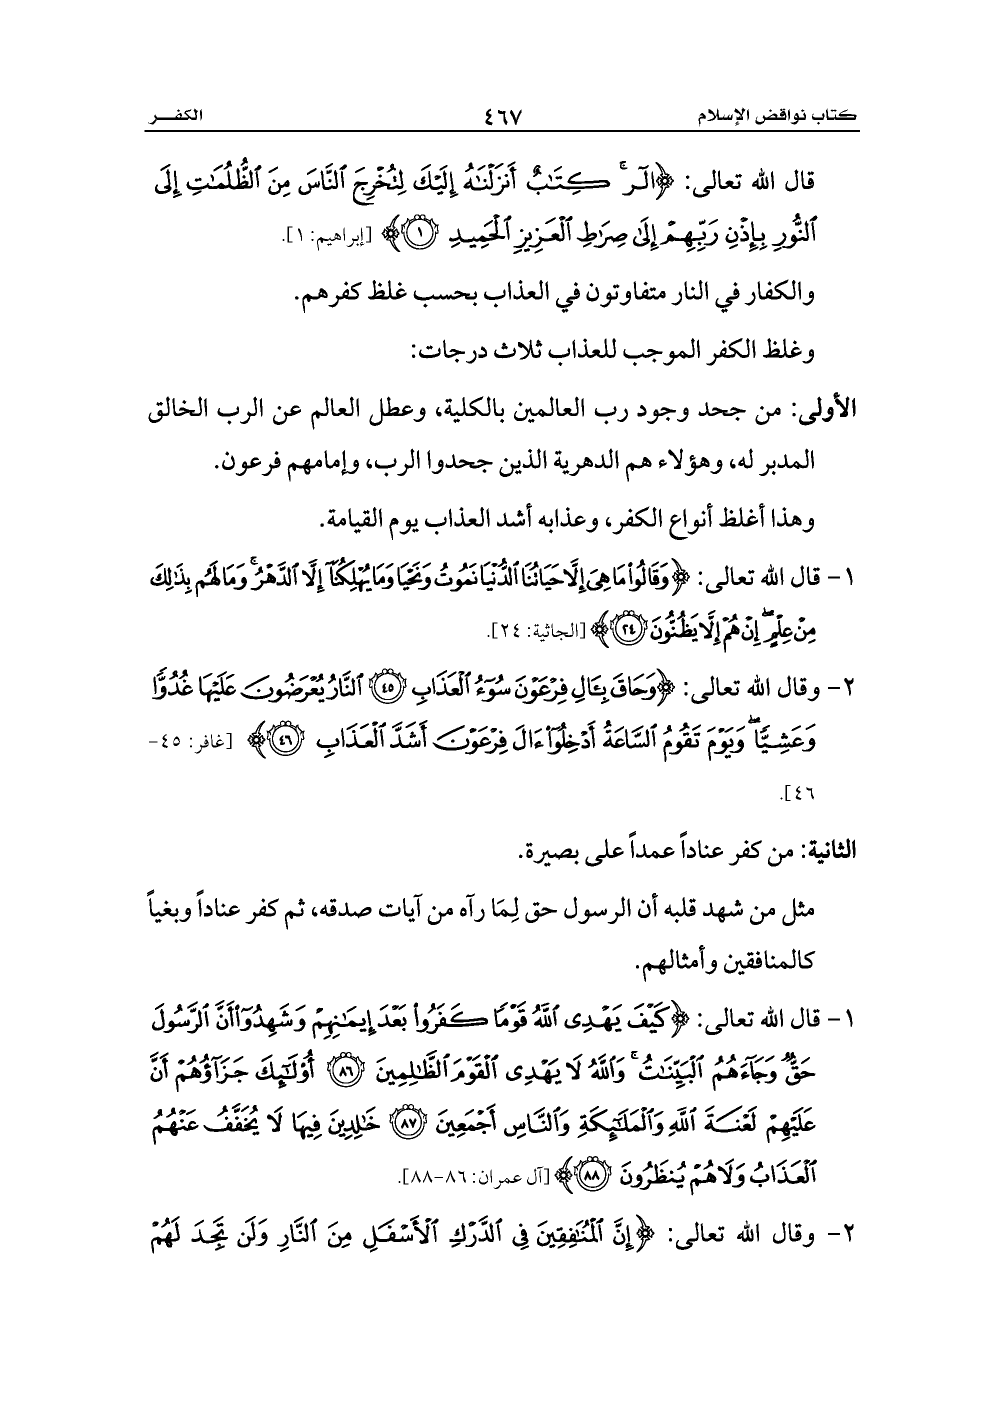 كتاب نواقض الإسلام ٤٦٧ الكفـــر
قال الله تعالى: ﴿الٓرۚ كِتَٰبٌ أَنزَلۡنَٰهُ إِلَيۡكَ لِتُخۡرِجَ ٱلنَّاسَ مِنَ ٱلظُّلُمَٰتِ إِلَى
ٱلنُّورِ بِإِذۡنِ رَبِّهِمۡ إِلَىٰ صِرَٰطِ ٱلۡعَزِيزِ ٱلۡحَمِيدِ ١﴾ [إبراهيم: ١].
والكفار في النار متفاوتون في العذاب بحسب غلظ كفرهم.
وغلظ الكفر الموجب للعذاب ثلاث درجات:
الأولى: من جحد وجود رب العالمين بالكلية، وعطل العالم عن الرب الخالق
المدبر له، وهؤلاء هم الدهرية الذين جحدوا الرب، وإمامهم فرعون.
وهذا أغلظ أنواع الكفر، وعذابه أشد العذاب يوم القيامة.
١- قال الله تعالى: ﴿وَقَالُواْ مَا هِيَ إِلَّا حَيَاتُنَا ٱلدُّنۡيَا نَمُوتُ وَنَحۡيَا وَمَا يُهۡلِكُنَآ إِلَّا ٱلدَّهۡرُۚ وَمَا لَهُم بِذَٰلِكَ
مِنۡ عِلۡمٍۖ إِنۡ هُمۡ إِلَّا يَظُنُّونَ ٢٤﴾ [الجاثية: ٢٤].
٢- وقال الله تعالى: ﴿وَحَاقَ بِـَٔالِ فِرۡعَوۡنَ سُوٓءُ ٱلۡعَذَابِ ٤٥ ٱلنَّارُ يُعۡرَضُونَ عَلَيۡهَا غُدُوّٗا
وَعَشِيّٗاۖ وَيَوۡمَ تَقُومُ ٱلسَّاعَةُ أَدۡخِلُوٓاْ ءَالَ فِرۡعَوۡنَ أَشَدَّ ٱلۡعَذَابِ ٤٦﴾ [غافر: ٤٥-
٤٦].
الثانية: من كفر عناداً عمداً على بصيرة.
مثل من شهد قلبه أن الرسول حق لِمَا رآه من آيات صدقه، ثم كفر عناداً وبغياً
كالمنافقين وأمثالهم.
١- قال الله تعالى: ﴿كَيۡفَ يَهۡدِي ٱللَّهُ قَوۡمٗا كَفَرُواْ بَعۡدَ إِيمَٰنِهِمۡ وَشَهِدُوٓاْ أَنَّ ٱلرَّسُولَ
حَقّٞ وَجَآءَهُمُ ٱلۡبَيِّنَٰتُۚ وَٱللَّهُ لَا يَهۡدِي ٱلۡقَوۡمَ ٱلظَّٰلِمِينَ ٨٦ أُوْلَٰٓئِكَ جَزَآؤُهُمۡ أَنَّ
عَلَيۡهِمۡ لَعۡنَةَ ٱللَّهِ وَٱلۡمَلَٰٓئِكَةِ وَٱلنَّاسِ أَجۡمَعِينَ ٨٧ خَٰلِدِينَ فِيهَا لَا يُخَفَّفُ عَنۡهُمُ
ٱلۡعَذَابُ وَلَا هُمۡ يُنظَرُونَ ٨٨﴾ [آل عمران: ٨٦-٨٨].
٢- وقال الله تعالى: ﴿إِنَّ ٱلۡمُنَٰفِقِينَ فِي ٱلدَّرۡكِ ٱلۡأَسۡفَلِ مِنَ ٱلنَّارِ وَلَن تَجِدَ لَهُمۡ